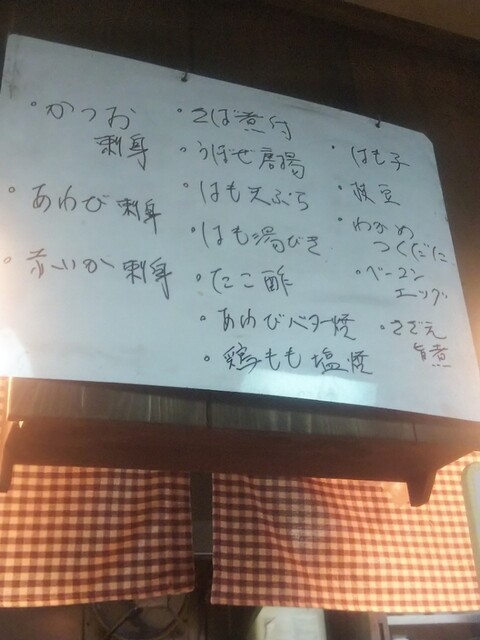 ・かつお
刺身
・あわび刺身
・赤いか刺身
・さば煮付
・うぼぜ唐揚
・はも天ぷら
・はも湯びき
・たこ酢
・あわびバター焼
・鶏もも塩焼
・はも子
・枝豆
・わかめ
つくだに
・ベーコン
エッグ
・さざえ
旨煮